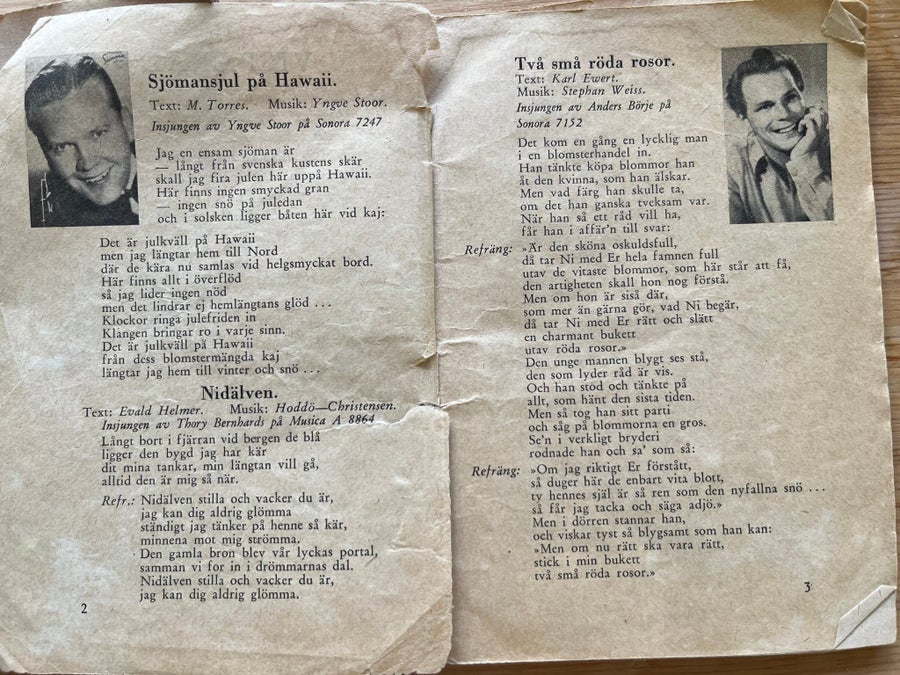 Sjömansjul på Hawaii.
Text: M. Torres. Musik: Yngve Stoor.
Insjungen av Yngve Stoor på Sonora 7247
Jag en ensam sjöman är
— långt från svenska kustens skär
skall jag fira julen här uppå Hawaii.
Här finns ingen smyckad gran
— ingen snö på juledan
och i solsken ligger båten här vid kaj:
Det är julkväll på Hawaii
men jag längtar hem till Nord
där de kära nu samlas vid helgsmyckat bord.
Här finns allt i överflöd
så jag lider ingen nöd
men det lindrar ej hemlängtans glöd ...
Klockor ringa julefriden in
Klangen bringar ro i varje sinn.
Det är julkväll på Hawaii
från dess blomstermängda kaj
längtar jag hem till vinter och snö ...
Nidälven.
Text: Evald Helmer. Musik: Hoddö—Christensen.
Insjungen av Thory Bernhards på Musica A 8864
Långt bort i fjärran vid bergen de blå
ligger den bygd jag har kär
dit mina tankar, min längtan vill gå,
alltid den är mig så när.
Refr.: Nidälven stilla och vacker du är,
jag kan dig aldrig glömma
ständigt jag tänker på henne så kär,
minnena mot mig strömma.
Den gamla bron blev vår lyckas portal,
samman vi for in i drömmarnas dal.
Nidälven stilla och vacker du är,
jag kan dig aldrig glömma.
2
Två små röda rosor.
Text: Karl Ewert.
Musik: Stephan Weiss.
Insjungen av Anders Börje på
Sonora 7152
Det kom en gång en lycklig man
i en blomsterhandel in.
Han tänkte köpa blommor han
åt den kvinna, som han älskar.
Men vad färg han skulle ta,
om det han ganska tveksam var.
När han så ett råd vill ha,
får han i affär'n till svar:
Refräng: »Är den sköna oskuldsfull,
då tar Ni med Er hela famnen full
utav de vitaste blommor, som här står att få,
den artigheten skall hon nog förstå.
Men om hon är siså där,
som mer än gärna gör, vad Ni begär,
då tar Ni med Er rätt och slätt
en charmant bukett
utav röda rosor.»
Den unge mannen blygt ses stå,
den som lyder råd är vis.
Och han stod och tänkte på
allt, som hänt den sista tiden.
Men så tog han sitt parti
och såg på blommorna en gros.
Se'n i verkligt bryderi
rodnade han och sa' som så:
Refräng: »Om jag riktigt Er förstått,
så duger här de enbart vita blott,
ty hennes själ är så ren som den nyfallna snö ...
så får jag tacka och säga adjö.»
Men i dörren stannar han,
och viskar tyst så blygsamt som han kan:
»Men om nu rätt ska vara rätt,
stick i min bukett
två små röda rosor.»
3